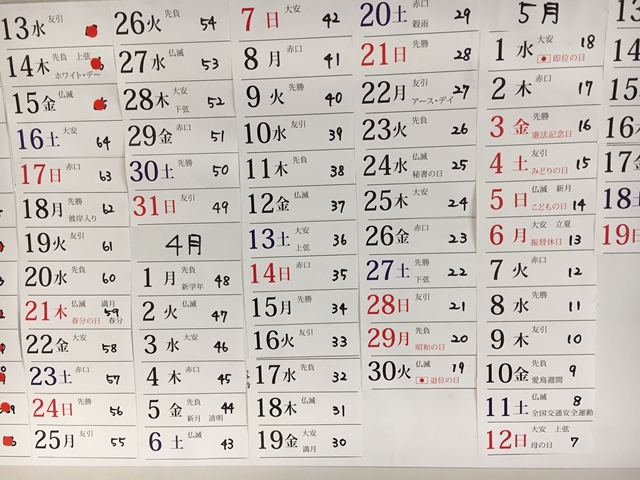 13 水 友引
14 木 先負 上弦
ホワイト・デー
15 金 仏滅
16 土 大安 64
17 日 赤口 63
18 月 先勝 62
彼岸入り
19 火 友引 61
20 水 先負 60
21 木 仏滅 満月 59
春分の日 春分
22 金 大安 58
23 土 赤口 57
24 日 先勝 56
25 月 友引 55
26 火 先負 54
27 水 仏滅 53
28 木 大安 52
下弦
29 金 赤口 51
30 土 先勝 50
31 日 友引 49
4月
1 月 先負 48
新学年
2 火 仏滅 47
3 水 大安 46
4 木 赤口 45
5 金 先負 44
新月 清明
6 土 仏滅 43
7 日 大安 42
8 月 赤口 41
9 火 先勝 40
10 水 友引 39
11 木 先負 38
12 金 仏滅 37
13 土 大安 36
上弦
14 日 赤口 35
15 月 先勝 34
16 火 友引 33
17 水 先負 32
18 木 仏滅 31
19 金 大安 30
満月
20 土 赤口 29
穀雨
21 日 先勝 28
22 月 友引 27
アース・デイ
23 火 先負 26
24 水 仏滅 25
秘書の日
25 木 大安 24
26 金 赤口 23
27 土 先勝 22
下弦
28 日 友引 21
29 月 先負 20
昭和の日
30 火 仏滅 19
退位の日
5月
1 水 大安 18
即位の日
2 木 赤口 17
3 金 先勝 16
憲法記念日
4 土 友引 15
みどりの日
5 日 仏滅 新月 14
こどもの日
6 月 大安 立夏 13
振替休日
7 火 赤口 12
8 水 先勝 11
9 木 友引 10
10 金 先負 9
愛鳥週間
11 土 仏滅 8
全国交通安全運動
12 日 大安 上弦 7
母の日
13
14
15
16 木
17
18 土
19 日